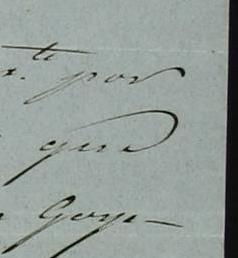 te por
que
Goye-